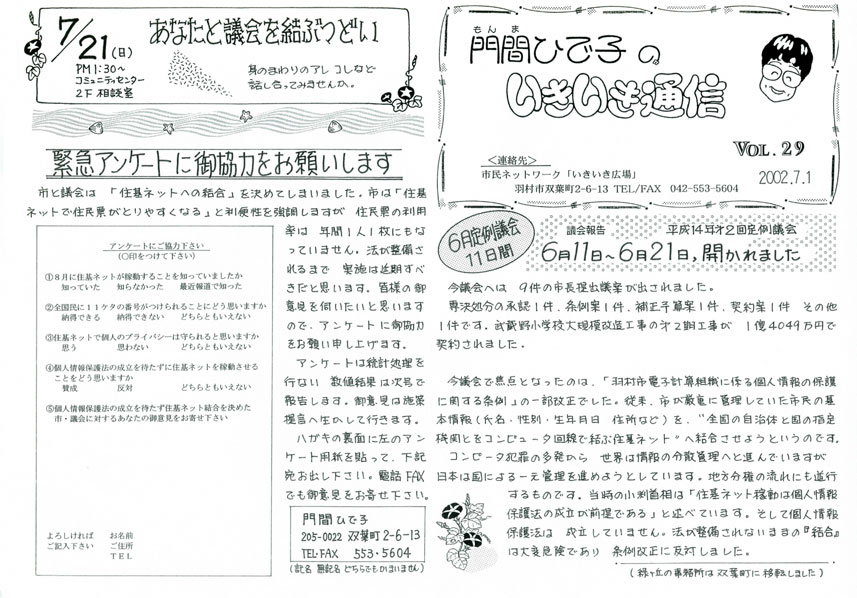 もんま
門間ひで子の
いきいき通信
VOL.29
2002.7.1
<連絡先>
市民ネットワーク「いきいき広場」
羽村市双葉町2-6-13 TEL/FAX 042-553-5604
7/21(日)
PM1:30~
コミュニティセンター
2F 相談室
あなたと議会を結ぶつどい
身のまわりのアレコレなど
話し合ってみませんか。
6月定例議会
11日間
議会報告 平成14年才2回定例議会
6月11日~6月21日,開かれました
今議会へは 9件の市長提出議案が出されました。
専決処分の承認1件、条例案1件、補正予算案1件、契約案1件 その他
1件です。武蔵野小学校大規模改造工事の才2期工事が 1億4049万円で
契約されました。
今議会で焦点となったのは、「羽村市電子計算組織に係る個人情報の保護
に関する条例」の一部改正でした。従来、市が厳重に管理していた市民の基
本情報(氏名・性別・生年月日 住所など)を、“全国の自治体と国の指定
機関とをコンピュータ回線で結ぶ住基ネット”へ結合させようというのです。
コンピュータ犯罪の多発から 世界は情報の分散管理へと進んでいますが
日本は国による一元管理を進めようとしています。地方分権の流れにも逆行
するものです。当時の小渕首相は「住基ネット稼動は個人情報
保護法の成立が前提である」と述べています。そして個人情報
保護法は 成立していません。法が整備されないままの『結合』
は大変危険であり 条例改正に反対しました。
(緑ヶ丘の事務所は双葉町に移転しました)
緊急アンケートに御協力をお願いします
市と議会は 「住基ネットへの結合」を決めてしまいました。市は「住基
ネットで住民票がとりやすくなる」と利便性を強調しますが 住民票の利用
率は 年間1人1枚にもな
っていません。法が整備さ
れるまで 実施は延期すべ
きだと思います。皆様の御
意見を伺いたいと思います
ので、アンケートに御協力
をお願い申し上げます。
アンケートは統計処理を
行ない 数値結果は次号で
報告します。御意見は施策
提言へ生かして行きます。
ハガキの裏面に左のアン
ケート用紙を貼って、下記
宛お出し下さい。電話FAX
でも御意見をお寄せ下さい。
門間ひで子
205-0022 双葉町2-6-13
TEL・FAX 553-5604
(記名 無記名 どちらでもかまいません)
アンケートにご協力下さい
(〇印をつけて下さい)
①8月に住基ネットが稼動することを知っていましたか
知っていた 知らなかった 最近報道で知った
②全国民に11ケタの番号がつけられることにどう思いますか
納得できる 納得できない どちらともいえない
③住基ネットで個人のプライバシーは守られると思いますか
思う 思わない どちらともいえない
④個人情報保護法の成立を待たずに住基ネットを稼動させる
ことをどう思いますか
賛成 反対 どちらともいえない
⑤個人情報保護法の成立を待たず住基ネット結合を決めた
市・議会に対するあなたの御意見をお寄せ下さい
よろしければ お名前
ご記入下さい ご住所
TEL